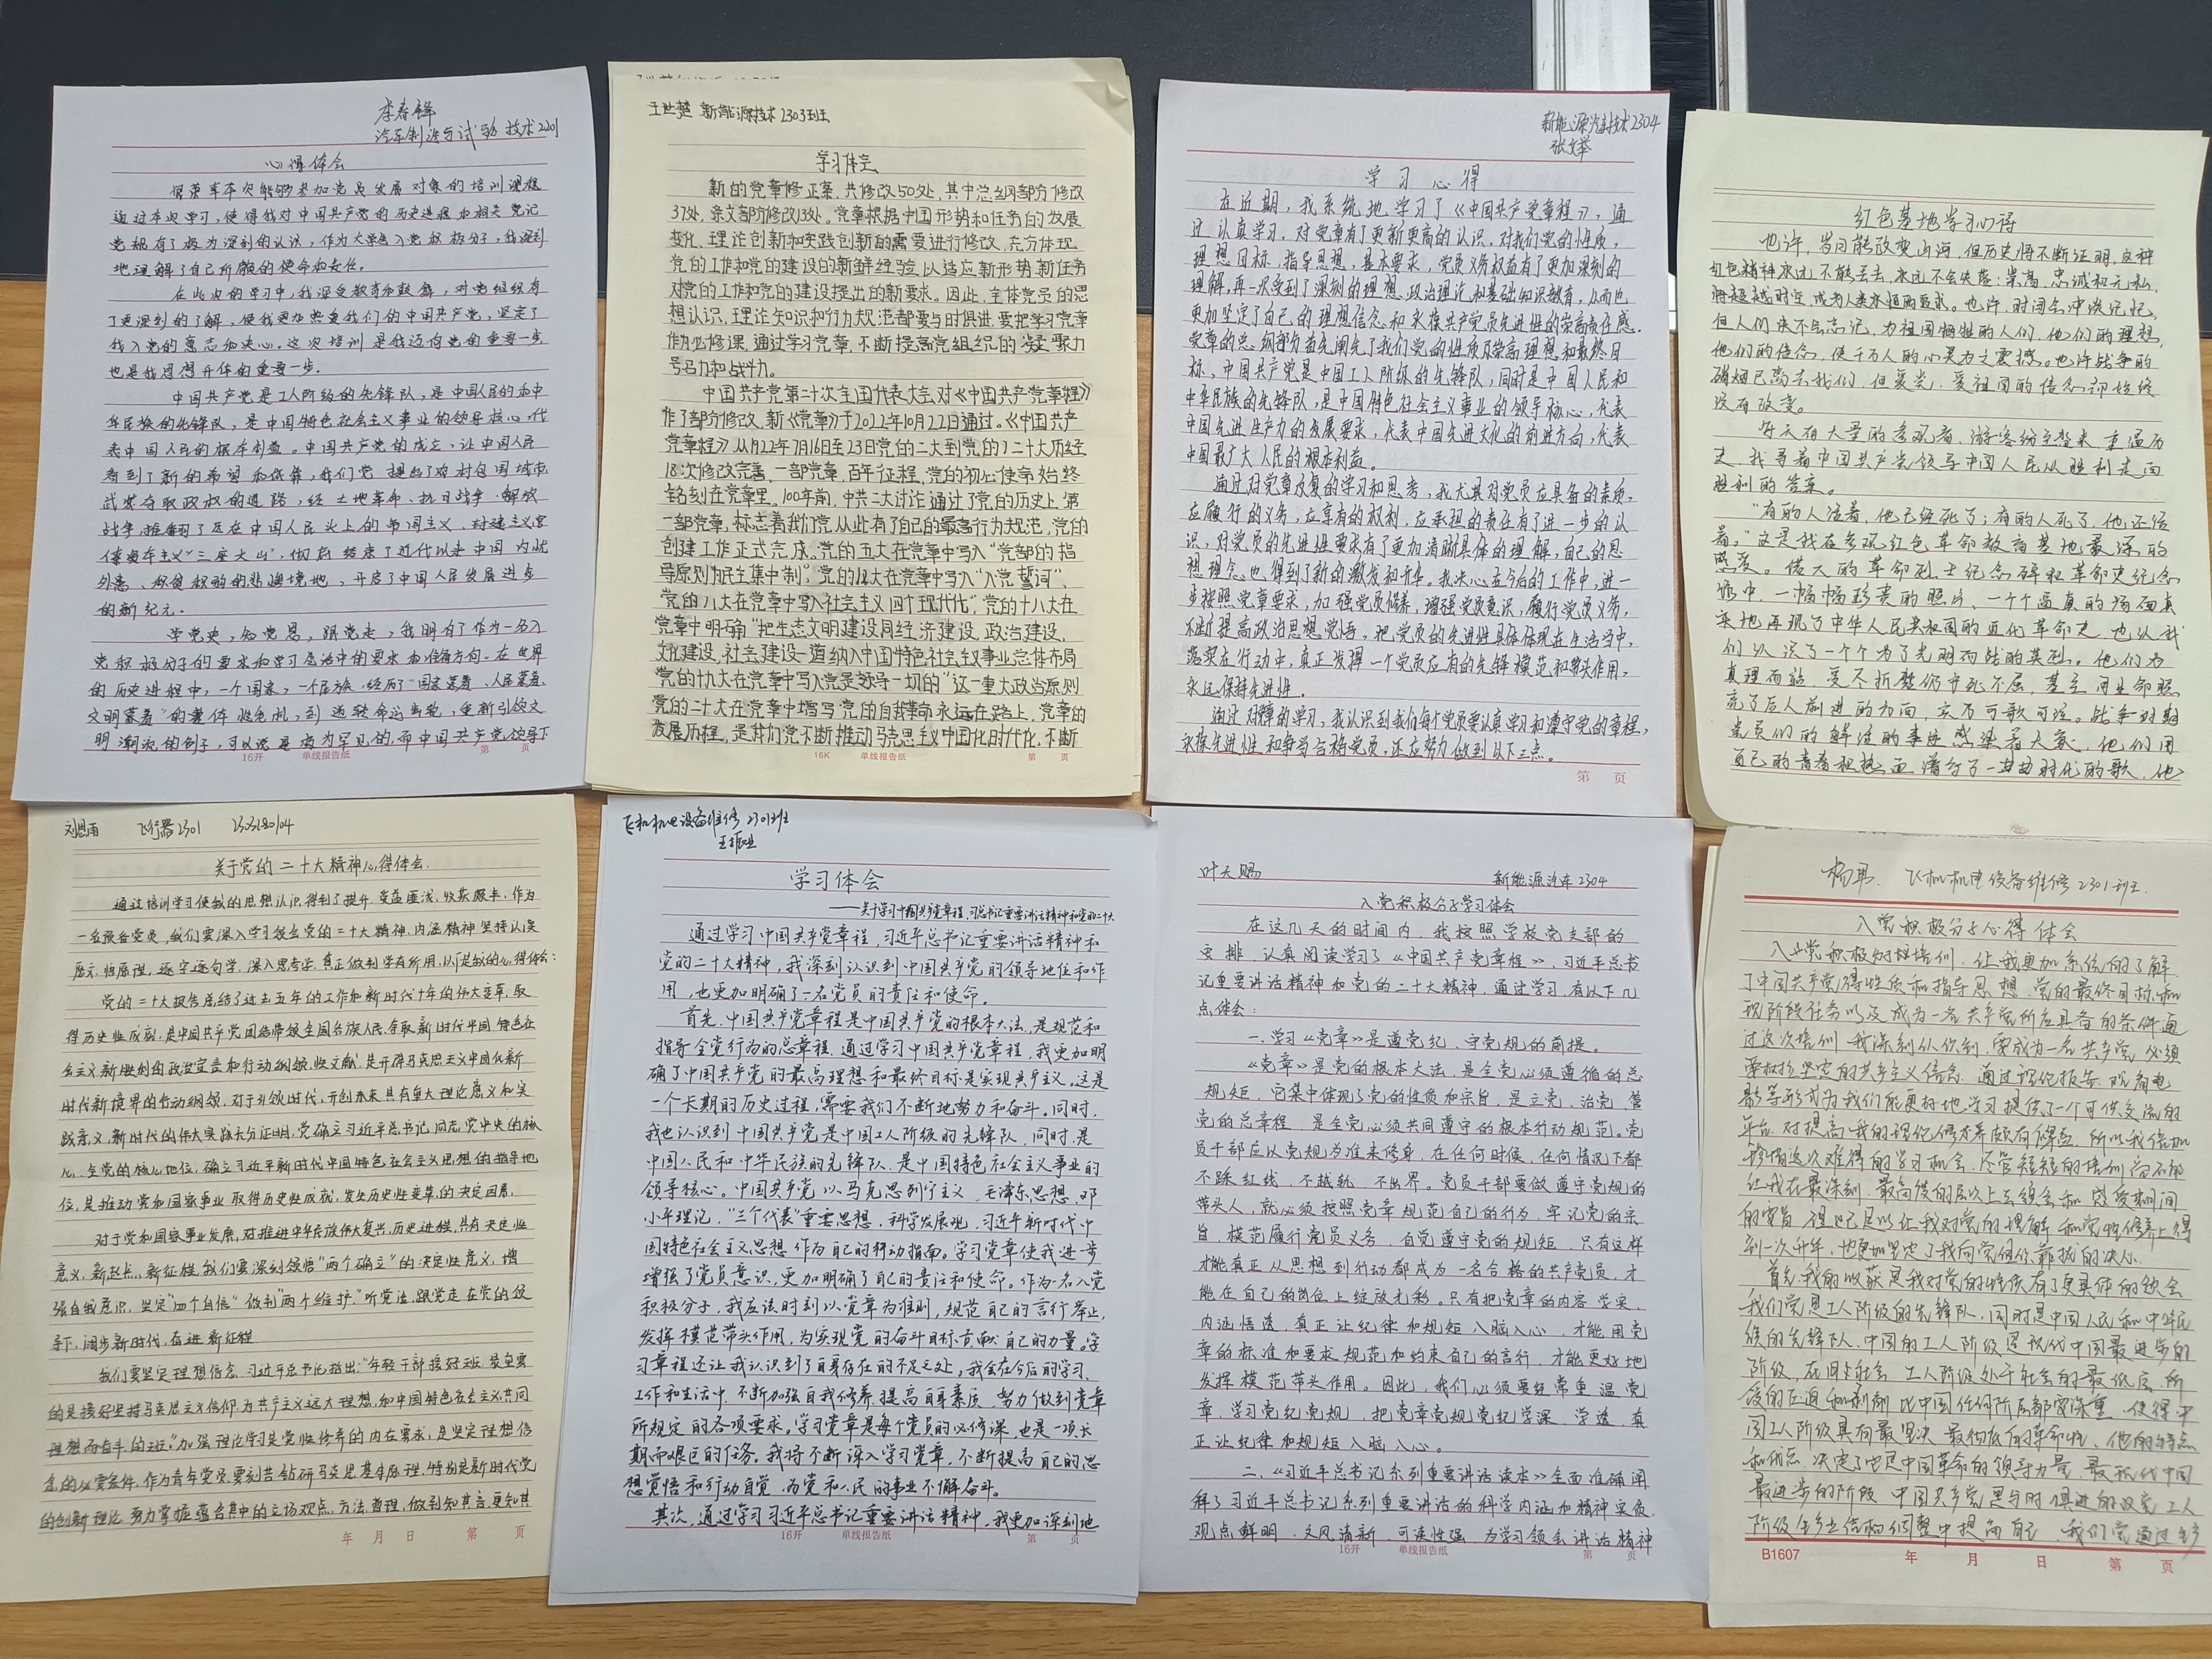 李春锋
汽车制造与试验技术2201
心得体会
很荣幸本次能够参加党员发展对象的培训课程
通过本次学习,使得我对中国共产党的历史进程和相关党记
党规有了极为深刻的认识,作为大学生入党积极分子,我深刻
地理解了自己所属的使命和责任。
在此次的学习中,我深受教育和鼓舞,对党组织有
了更深刻的了解,使我更加热爱我们的中国共产党,坚定了
我入党的意志和决心,这次培训是我迈向党的重要一步
也是我思想升华的重要一步。
中国共产党是工人阶级的先锋队,是中国人民的和中
华民族的先锋队,是中国特色社会主义事业的领导核心,代
表中国人民的根本利益。中国共产党的成立、让中国人民
看到了新的希望和依靠,我们党提出了农村包围城市
武装夺取政权的道路,经土地革命、抗日战争、解放
战争,推翻了压在中国人民头上的帝国主义、封建主义官
僚资本主义"三座大山",彻底结束了近代以来中国内忧
外患、积贫积弱的悲惨境地,开启了中国人民发展进步
的新纪元。
学党史,知党恩,跟党走,我明白了作为一名入
党积极分子的要求和学习生活中的要求和准备方向。在世界
的历史进程中,一个国家,一个民族,经历了"国家蒙辱、人民蒙难、
文明蒙尘"的整体性危机,到逆转命运步轮,重新引领文
明潮流的例子,可以说是极为罕见的,而中国共产党领导下
16开 单线报告纸 第 页
王世楚 新能源技术2303班
学习体会
新的党章修正案,共修改50处,其中总纲部分修改
37处,条文部分修改13处。党章根据中国形势和任务的发展
变化、理论创新和实践创新的需要进行修改,充分体现
党的工作和党的建设的新鲜经验,以适应新形势新任务
对党的工作和党的建设提出的新要求。因此,全体党员的思
想认识、理论知识和行为规范都要与时俱进,要把学习党章
作为必修课,通过学习党章,不断提高党组织的凝聚力
号召力和战斗力。
中国共产党第二十次全国代表大会对《中国共产党章程》
作了部分修改,新《党章》于2022年10月22日通过。《中国共产
党章程》从1922年7月16日至23日党的二大到党的二十大历经
18次修改完善,一部党章,百年征程,党的初心使命始终
铭刻在党章里。100年前,中共二大讨论通过了党的历史上第
一部党章,标志着我们党从此有了自己的最高行为规范,党的
创建工作正式完成。党的五大在党章中写入"党部的指
导原则为民主集中制";党的八大在党章中写入"入党誓词"、
党的八大在党章中写入社会主义"四个现代化";党的十八大在
党章中明确"把生态文明建设同经济建设、政治建设、
文化建设、社会建设一道纳入中国特色社会主义事业总体布局
党的十九大在党章中写入"党是领导一切的"这一重大政治原则
党的二十大在党章中增写党的自我革命永远在路上,党章的
发展历程,是我们党不断推动马克思主义中国化时代化,不断
16K 单线报告纸 第 页
新能源汽车技术2304
张文举
学习心得
在近期,我系统地学习了《中国共产党章程》,通
过认真学习,对党章有了更新更高的认识,对我们党的性质,
理想目标,指导思想,基本要求,党员义务权益有了更加深刻的
理解,再一次受到了深刻的理想、政治理论和基础知识教育,从而也
更加坚定了自己的理想信念和永葆共产党员先进性的崇高责任感。
党章的总纲部分首先阐先了我们党的性质及崇高理想和最终目
标,中国共产党是中国工人阶级的先锋队,同时是中国人民和
中华民族的先锋队,是中国特色社会主义事业的领导核心,代表
中国先进生产力的发展要求,代表中国先进文化的前进方向,代表
中国最广大人民的根本利益。
通过对党章反复的学习和思考,我尤其对党员应具备的素质,
应履行的义务,应享有的权利,应承担的责任有了进一步的认
识,对党员的先进性要求有了更加清晰具体的理解,自己的思
想理念也得到了新的激发和升华。我决心在今后的工作中,进一
步按照党章要求,加强党员修养,增强党员意识,履行党员义务,
不断提高政治思想觉悟,把党员的先进性具体体现在生活当中,
落实在行动中,真正发挥一个党员应有的先锋模范和带头作用,
永远保持先进性。
通过对党章的学习,我认识到我们每个党员要认真学习和遵守党的章程,
永葆先进性和争当合格党员,还应努力做到以下三点。
第 页
红色基地学习心得
也许,岁月能改变山海,但历史将不断证明,这种
红色精神永远不能丢去,永远不会失落:崇高、忠诚和无私,
将超越时空成为人类永恒的追求。也许,时间会冲淡记忆,
但人们决不会忘记,为祖国牺牲的人们,他们的理想,
他们的信念,使千万人的心灵为之震撼。也许战争的
硝烟已离去我们,但爱党,爱祖国的信念却始终
没有改变。
每天有大量的参观者、游客纷至沓来,重温历
史,找寻着中国共产党领导中国人民从胜利走向
胜利的答案。
"有的人活着,他已经死了;有的人死了,他还活
着。"这是我在参观红色革命教育基地最深的
感受。偌大的革命烈士纪念碑和革命史纪念
馆中,一幅幅珍贵的照片、一个个逼真的场面真
实地再现了中华人民共和国的近代革命史,也让我
们认识了一个个为了光明而战的英烈。他们为
真理而站,受尽折磨仍宁死不屈,甚至用生命照
亮了后人前进的方向,实在可歌可泣。战争时期
党员们的鲜活的事迹感染着大家,他们用
自己的青春和热血谱写了一曲曲时代的歌,他
刘思雨 飞行器2301
关于党的二十大精神心得体会.
通过培训学习使我的思想认识得到了提升,受益匪浅,收获颇丰,作为
一名预备党员,我们要深入学习领会党的二十大精神,内涵精神坚持认真
原文、悟原理,逐字逐句学,深入思考学,真正做到学有所用,以下是我的心得体会:
党的二十大报告总结了过去五年的工作和新时代十年的伟大变革,取
得历史性成就,是中国共产党团结带领全国各族人民,夺取新时代中国特色社
会主义新胜利的政治宣言和行动纲领性文献,是开辟马克思主义中国化新
时代新境界的行动纲领,对于引领时代,开创未来具有重大理论意义和实
践意义,新时代的伟大实践充分证明,党确立习近平总书记同志党中央的核
心、全党的核心地位,确立习近平新时代中国特色社会主义思想的指导地
位,是推动党和国家事业取得历史性成就,发生历史性变革的决定因素,
对于党和国家事业发展,对推进中华民族伟大复兴历史进程,具有决定性
意义,新起点、新征程,我们要深刻领悟"两个确立"的决定性意义,增
强自我意识,坚定"四个自信"做到"两个维护",听党话,跟党走在党的领
导下,阔步新时代,奋进新征程
我们要坚定理想信念,习近平总书记指出:"年轻干部接好班,最重要
的是接好坚持马克思主义信仰,为共产主义远大理想,和中国特色社会主义共同
理想而奋斗的班."加强理论学习是党性修养的内在要求,是坚定理想信
念的必要条件,作为青年党员,要刻苦钻研马克思基本原理,特别是新时代党
的创新理论,努力掌握蕴含其中的立场观点、方法、道理,做到知其言更知其
年 月 日 第 页
飞机机电设备维修2301班
学习体会
——关于学习中国共产党章程,习总书记重要讲话精神和党的二十大
通过学习中国共产党章程,习近平总书记重要讲话精神和
党的二十大精神,我深刻认识到中国共产党的领导地位和作
用,也更加明确了一名党员的责任和使命。
首先,中国共产党章程是中国共产党的根本大法,是规范和
指导全党行为的总章程,通过学习中国共产党章程,我更加明
确了中国共产党的最高理想和最终目标是实现共产主义。这是
一个长期的历史过程,需要我们不断地努力和奋斗。同时,
我也认识到中国共产党是中国工人阶级的先锋队,同时是
中国人民和中华民族的先锋队,是中国特色社会主义事业的
领导核心。中国共产党以马克思列宁主义、毛泽东思想、邓
小平理论,"三个代表"重要思想,科学发展观,习近平新时代中
国特色社会主义思想作为自己的行动指南。学习党章使我进一步
增强了党员意识,更加明确了自己的责任和使命。作为一名入党
积极分子,我应该时刻以党章为准则,规范自己的言行举止,
发挥模范带头作用,为实现党的奋斗目标贡献自己的力量。学
习章程还让我认识到了自身存在的不足之处,我会在今后的学习、
工作和生活中,不断加强自我修养,提高自身素质,努力做到党章
所规定的各项要求。学习党章是每个党员的必修课,也是一项长
期而艰巨的任务。我将不断深入学习党章,不断提高自己的思
想觉悟和行动自觉,为党和人民的事业不懈奋斗。
其次,通过学习习近平总书记重要讲话精神,我更加深刻地
16开 单线报告纸 第 页
叶天赐 新能源汽车2304
入党积极分子学习体会
在这几天的时间内,我按照学校党支部的
安排,认真阅读学习了《中国共产党章程》、习近平总书
记重要讲话精神和党的二十大精神,通过学习,有以下几
点体会:
一、学习《党章》是遵党纪、守党规的前提。
《党章》是党的根本大法,是全党必须遵循的总
规矩,它集中体现了党的性质和宗旨,是立党、治党、管
党的总章程,是全党必须共同遵守的根本行动规范。党
员干部应以党规为准来修身,在任何时候、任何情况下都
不踩红线、不越轨、不出界。党员干部要做遵守党规的
带头人,就必须按照党章规范自己的行为,牢记党的宗
旨,模范履行党员义务,自觉遵守党的规矩,只有这样
才能真正从思想到行动都成为一名合格的共产党员,才
能在自己的岗位上绽放光彩。只有把党章的内容学实、
内涵悟透,真正让纪律和规矩入脑入心,才能用党
章的标准和要求规范和约束自己的言行,才能更好地
发挥模范带头作用。因此,我们必须要经常重温党
章,学习党纪党规,把党章党规党纪学深、学透,真
正让纪律和规矩入脑入心。
二、《习近平总书记系列重要讲话读本》全面准确阐
释了习近平总书记系列重要讲话的科学内涵和精神实质,
观点鲜明、文风清新,可读性强,为学习领会讲话精神
16开 单线报告纸 第 页
飞机机电设备维修2301班.
入党积极分子心得体会
入党积极分子培训,让我更加系统的了解
了中国共产党得性质和指导思想,党的最终目标和
现阶段任务以及成为一名共产党所应具备的条件通
过这次培训,我深刻认识到,要成为一名共产党,必须
要树立坚定的共产主义信念,通过理论报告、观看电
影等形式为我们能更好地学习提供了一个可供交流的
平台,对提高我的理论修养颇有得益,所以我倍加
珍惜这次难得的学习机会,尽管短短的培训尚不能
让我在最深刻、最高度的层次上去领会和感受期间
的内容,但已足以让我对党的理解和党性修养上得
到一次升华,也更加坚定了我向党组织靠拢的决心.
首先,我的收获是我对党的性质有了更具体的领会
我们党是工人阶级的先锋队,同时是中国人民和中华民
族的先锋队,中国的工人阶级是现代中国最进步的
阶级,在旧社会,工人阶级处于社会的最低层,所
受的压迫和剥削比中国任何阶层都要深重,使得中
国工人阶级具有最坚决、最彻底的革命性、他的特点
和优点,决定了也是中国革命的领导力量,最现代中国
最进步的阶级,中国共产党是与时俱进的政党,工人
B1607 年 月 日 第 页